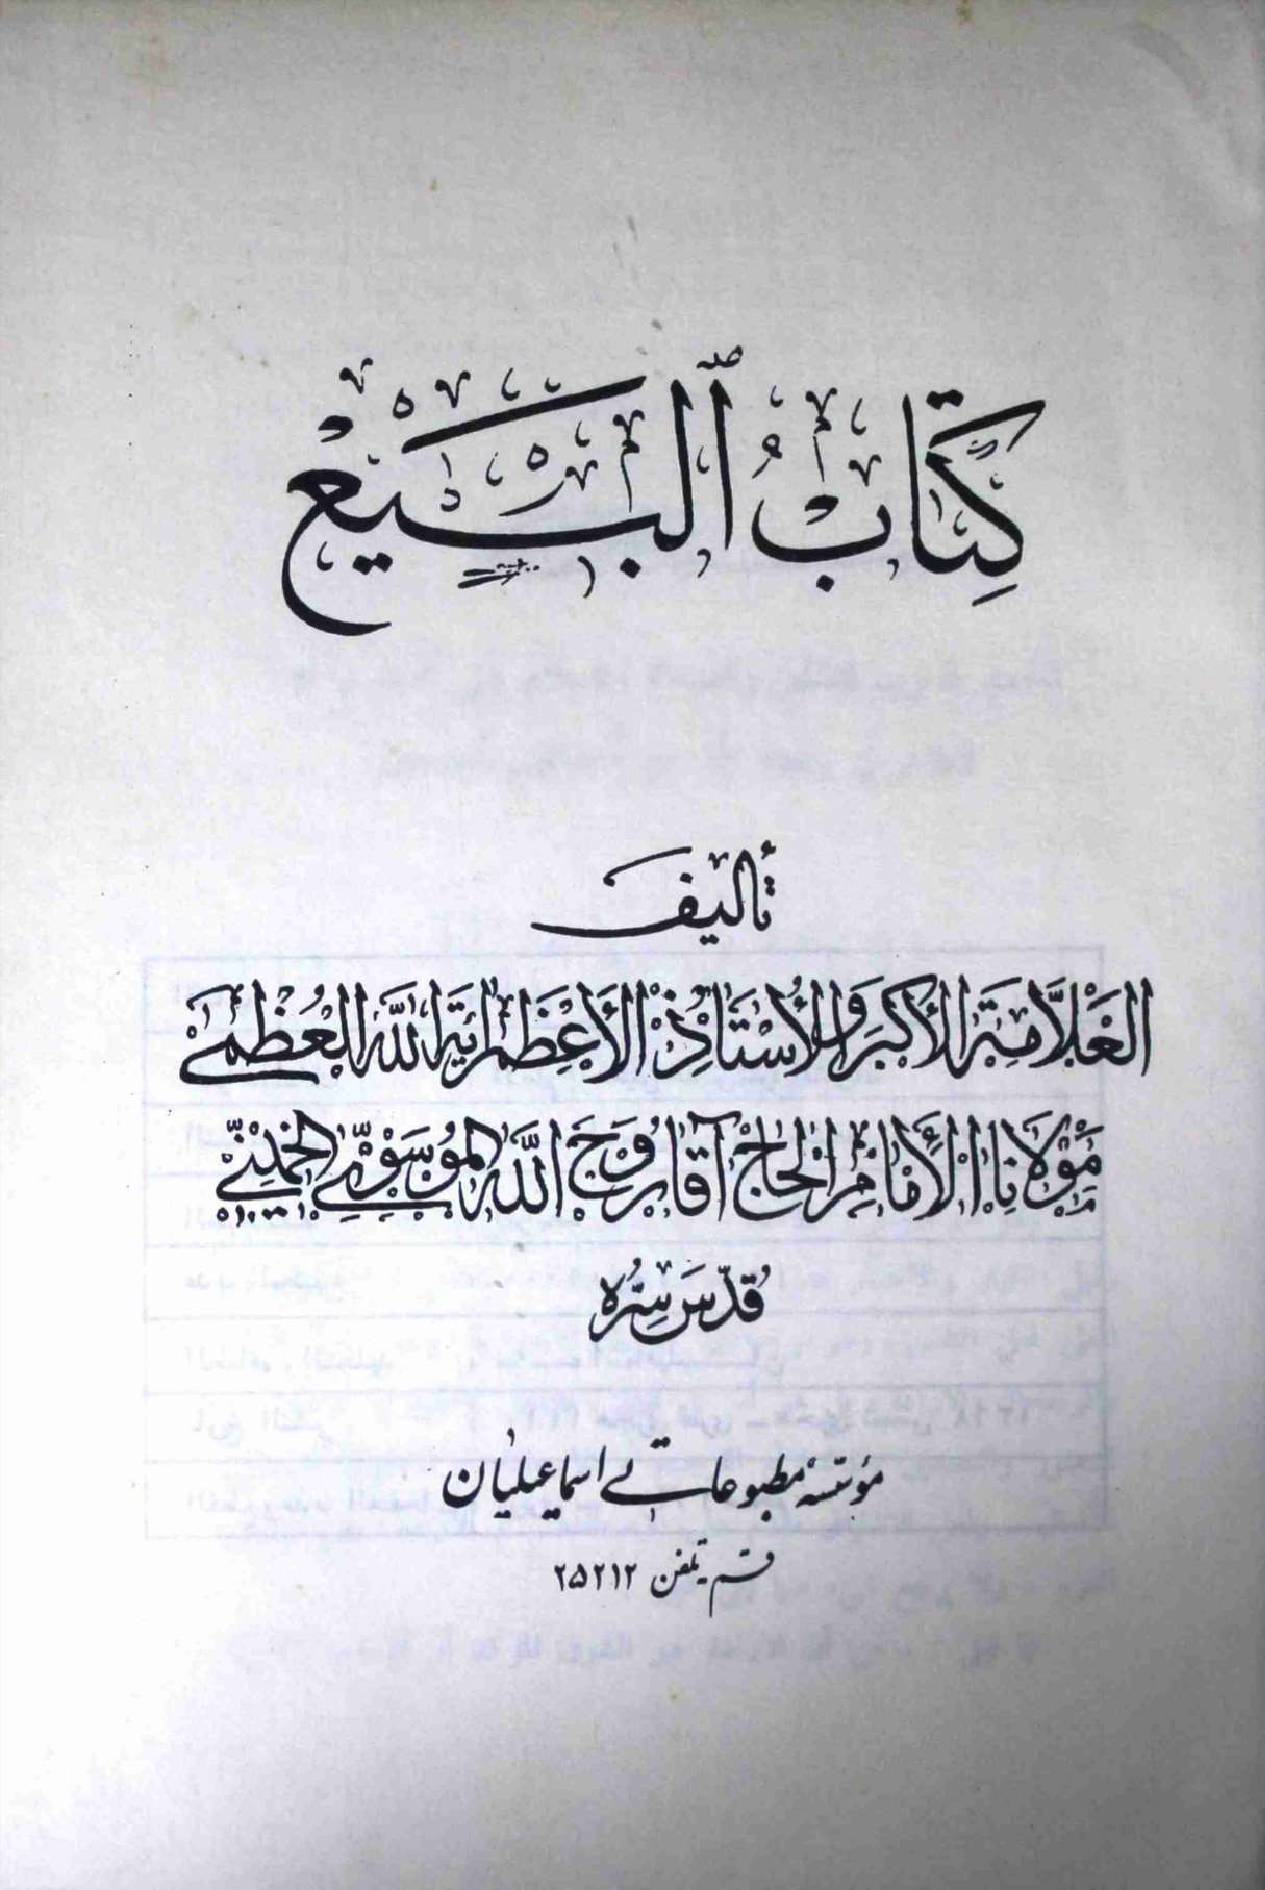 كِتَابُ ٱلْبَيْعِ
تأليف
العَلاَّمَة الأكبَر وَالأُسْتَاذِ الأَعْظَم ايَة اللّه العُظمىٰ
مَوْلانا الأمَام الحَاج آقا رُوح اللّه المُوسَوِيّ الخمينيّ
قُدّسَ سِرُّه
مؤسسۀ مطبوعاتی اسماعیلیان
قم - تلفن ٢٥٢١٢